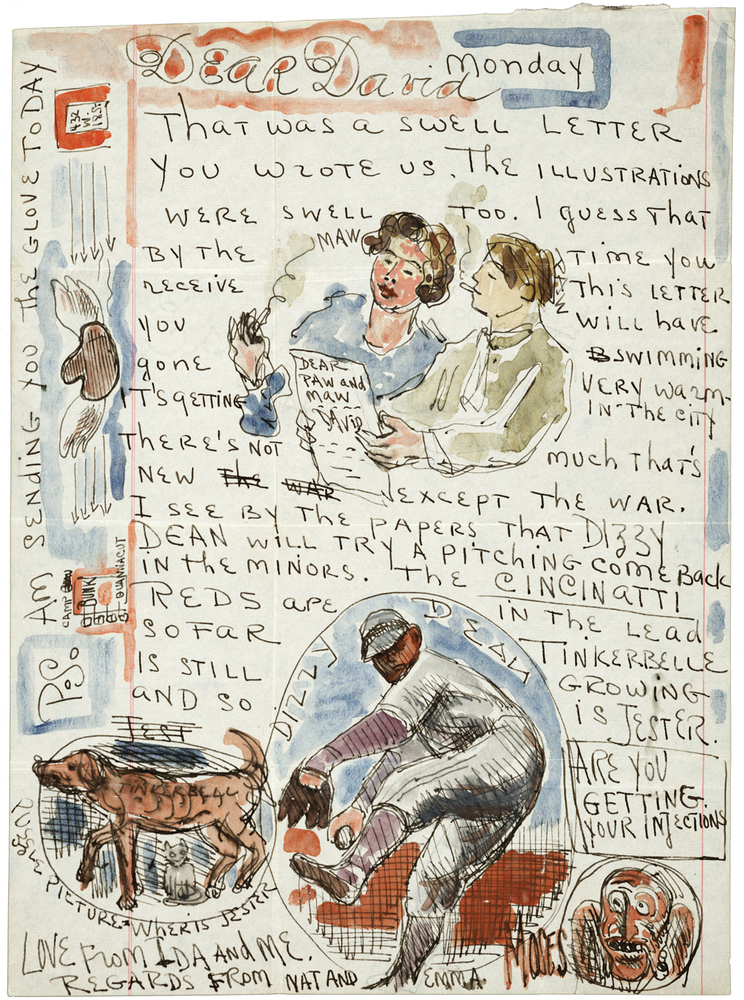 Dear David Monday
That was a swell letter
you wrote us. The illustrations
were swell too. I guess that
by the time you
receive this letter
you will have
gone swimming
It's getting very warm
in the city
There's not much that's
new the war except the war.
I see by the papers that Dizzy
Dean will try a pitching come back
in the minors. The Cincinatti
Reds are in the lead
so far Tinkerbelle
is still growing
and so is Jester.
Maw
Dear
Paw and
Maw
David
Are you
getting
your injections
Dizzy Dean
Jest
Tinkerbell
Puzzle Picture = Wher is Jester
Moses
Love from Ida and me.
Regards from Nat and Emma
P.S.
Am sending you the glove today
Camp
Bunk